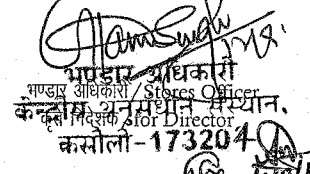 भण्डार अधिकारी
भण्डार अधिकारी/Stores Officer
केन्द्रीय अनुसंधान संस्थान,
कृते निदेशक /for Director
कसौली-173204